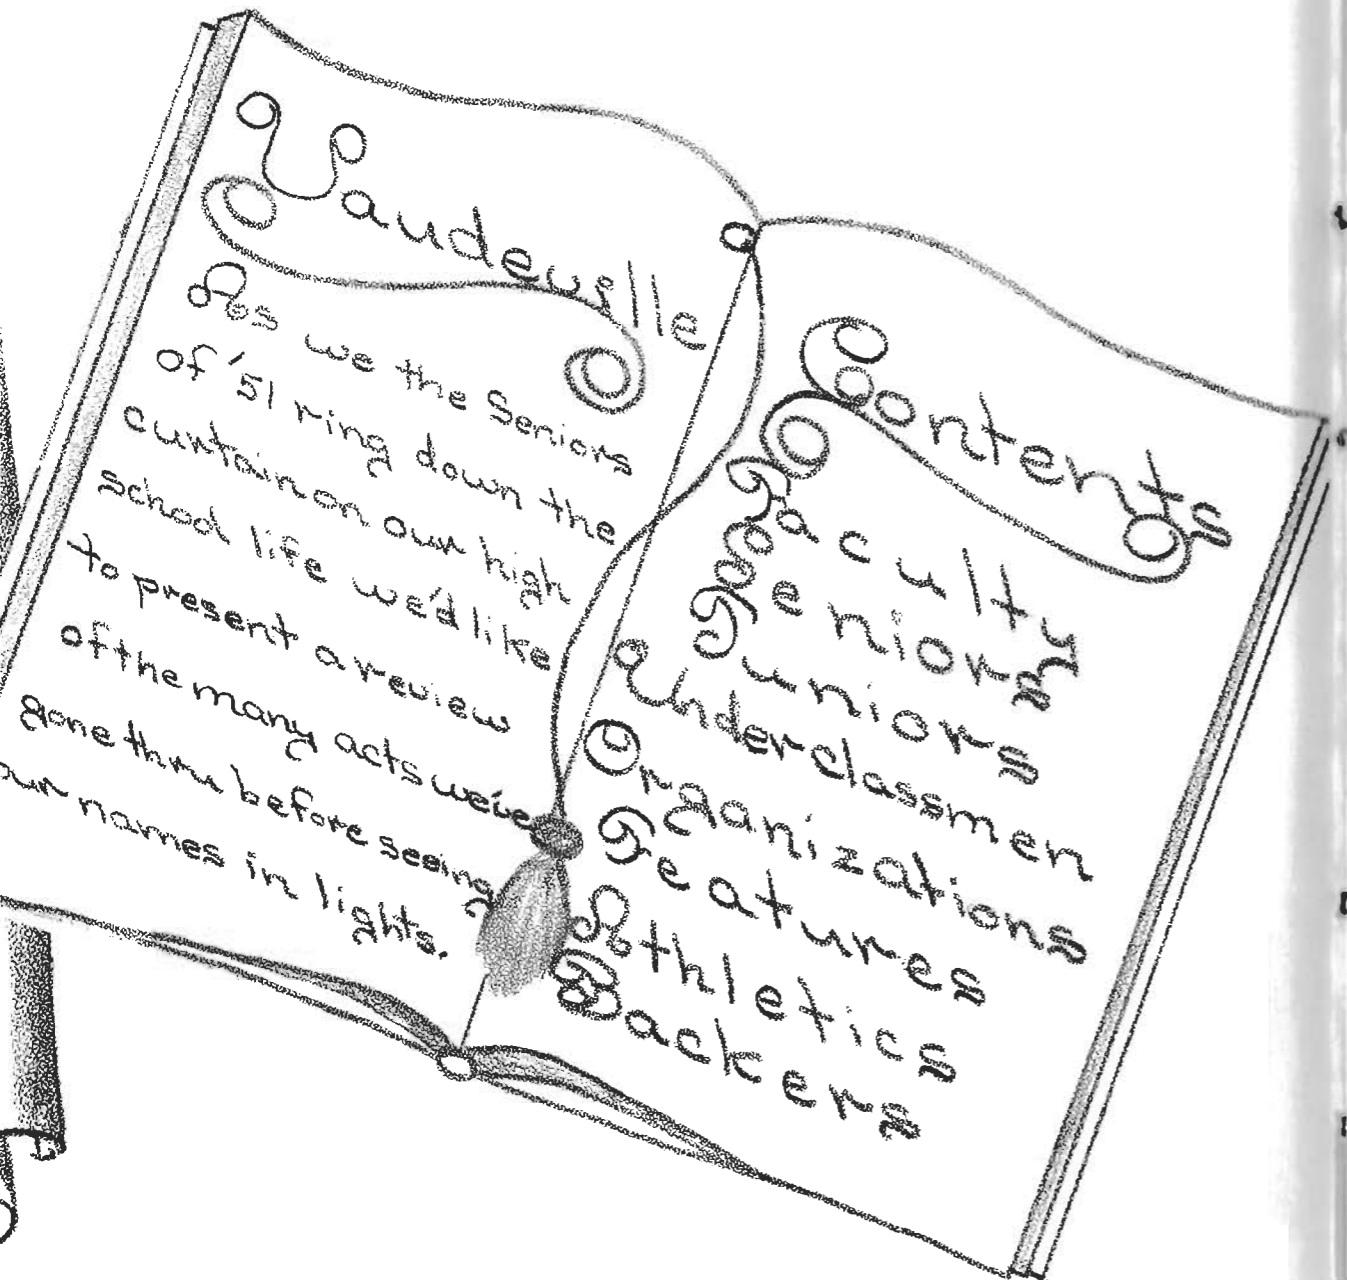 Vaudeville
As we the Seniors
of '51 ring down the
curtain on our high
school life we'd like
to present a review
of the many acts we've
gone thru before seeing
our names in lights.
Contents
Faculty
Seniors
Juniors
Underclassmen
Organizations
Features
Athletics
Backers